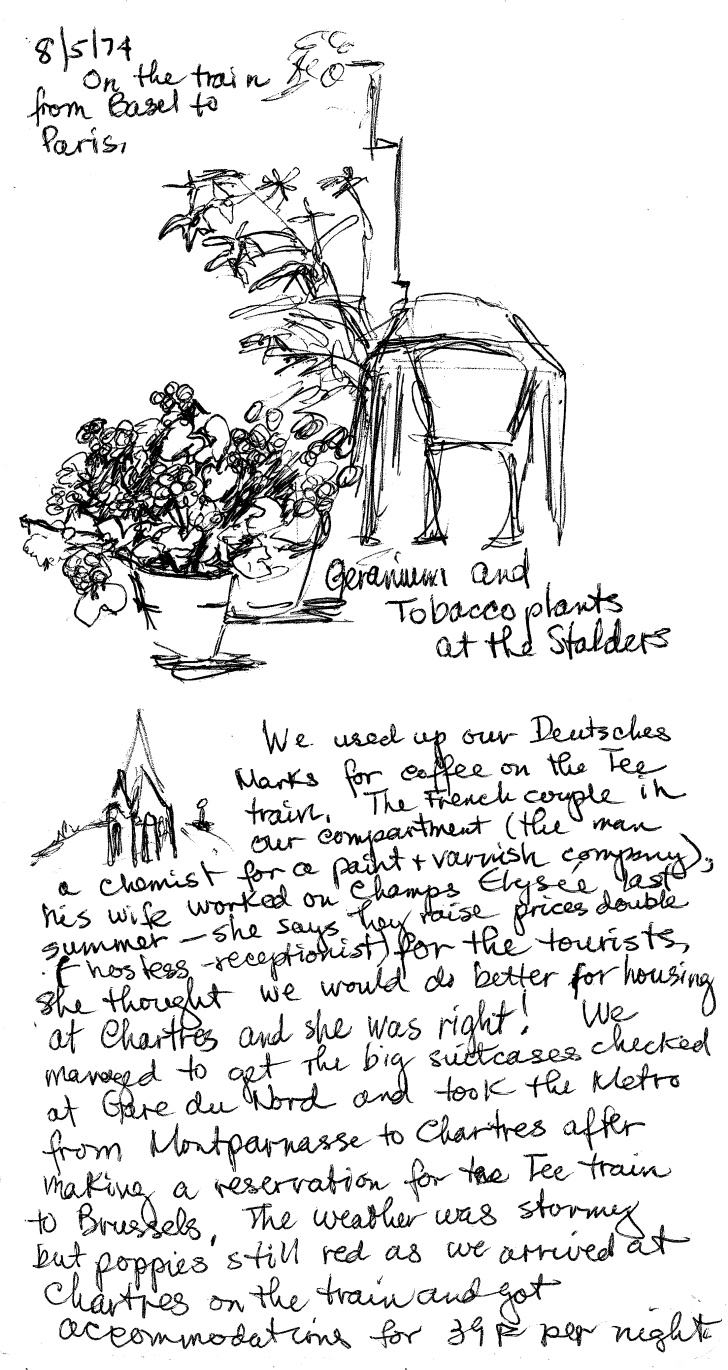 8/5/74
On the train
from Basel to
Paris,
Geraniums and
Tobacco plants
at the Stalders
We used up our Deutsches
Marks for coffee on the Tee
train. The French couple in
our compartment (the man
a chemist for a paint + varnish company),
his wife worked on Champs Elysée last
summer – she says they raise prices double
(hostess-receptionist) for the tourists,
she thought we would do better for housing
at Chartres and she was right! We
managed to get the big suitcases checked
at Gare du Nord and took the Metro
from Montparnasse to Chartres after
making a reservation for the Tee train
to Brussels. The weather was stormy
but poppies still red as we arrived at
Chartres on the train and got
accommodations for 39 F per night.